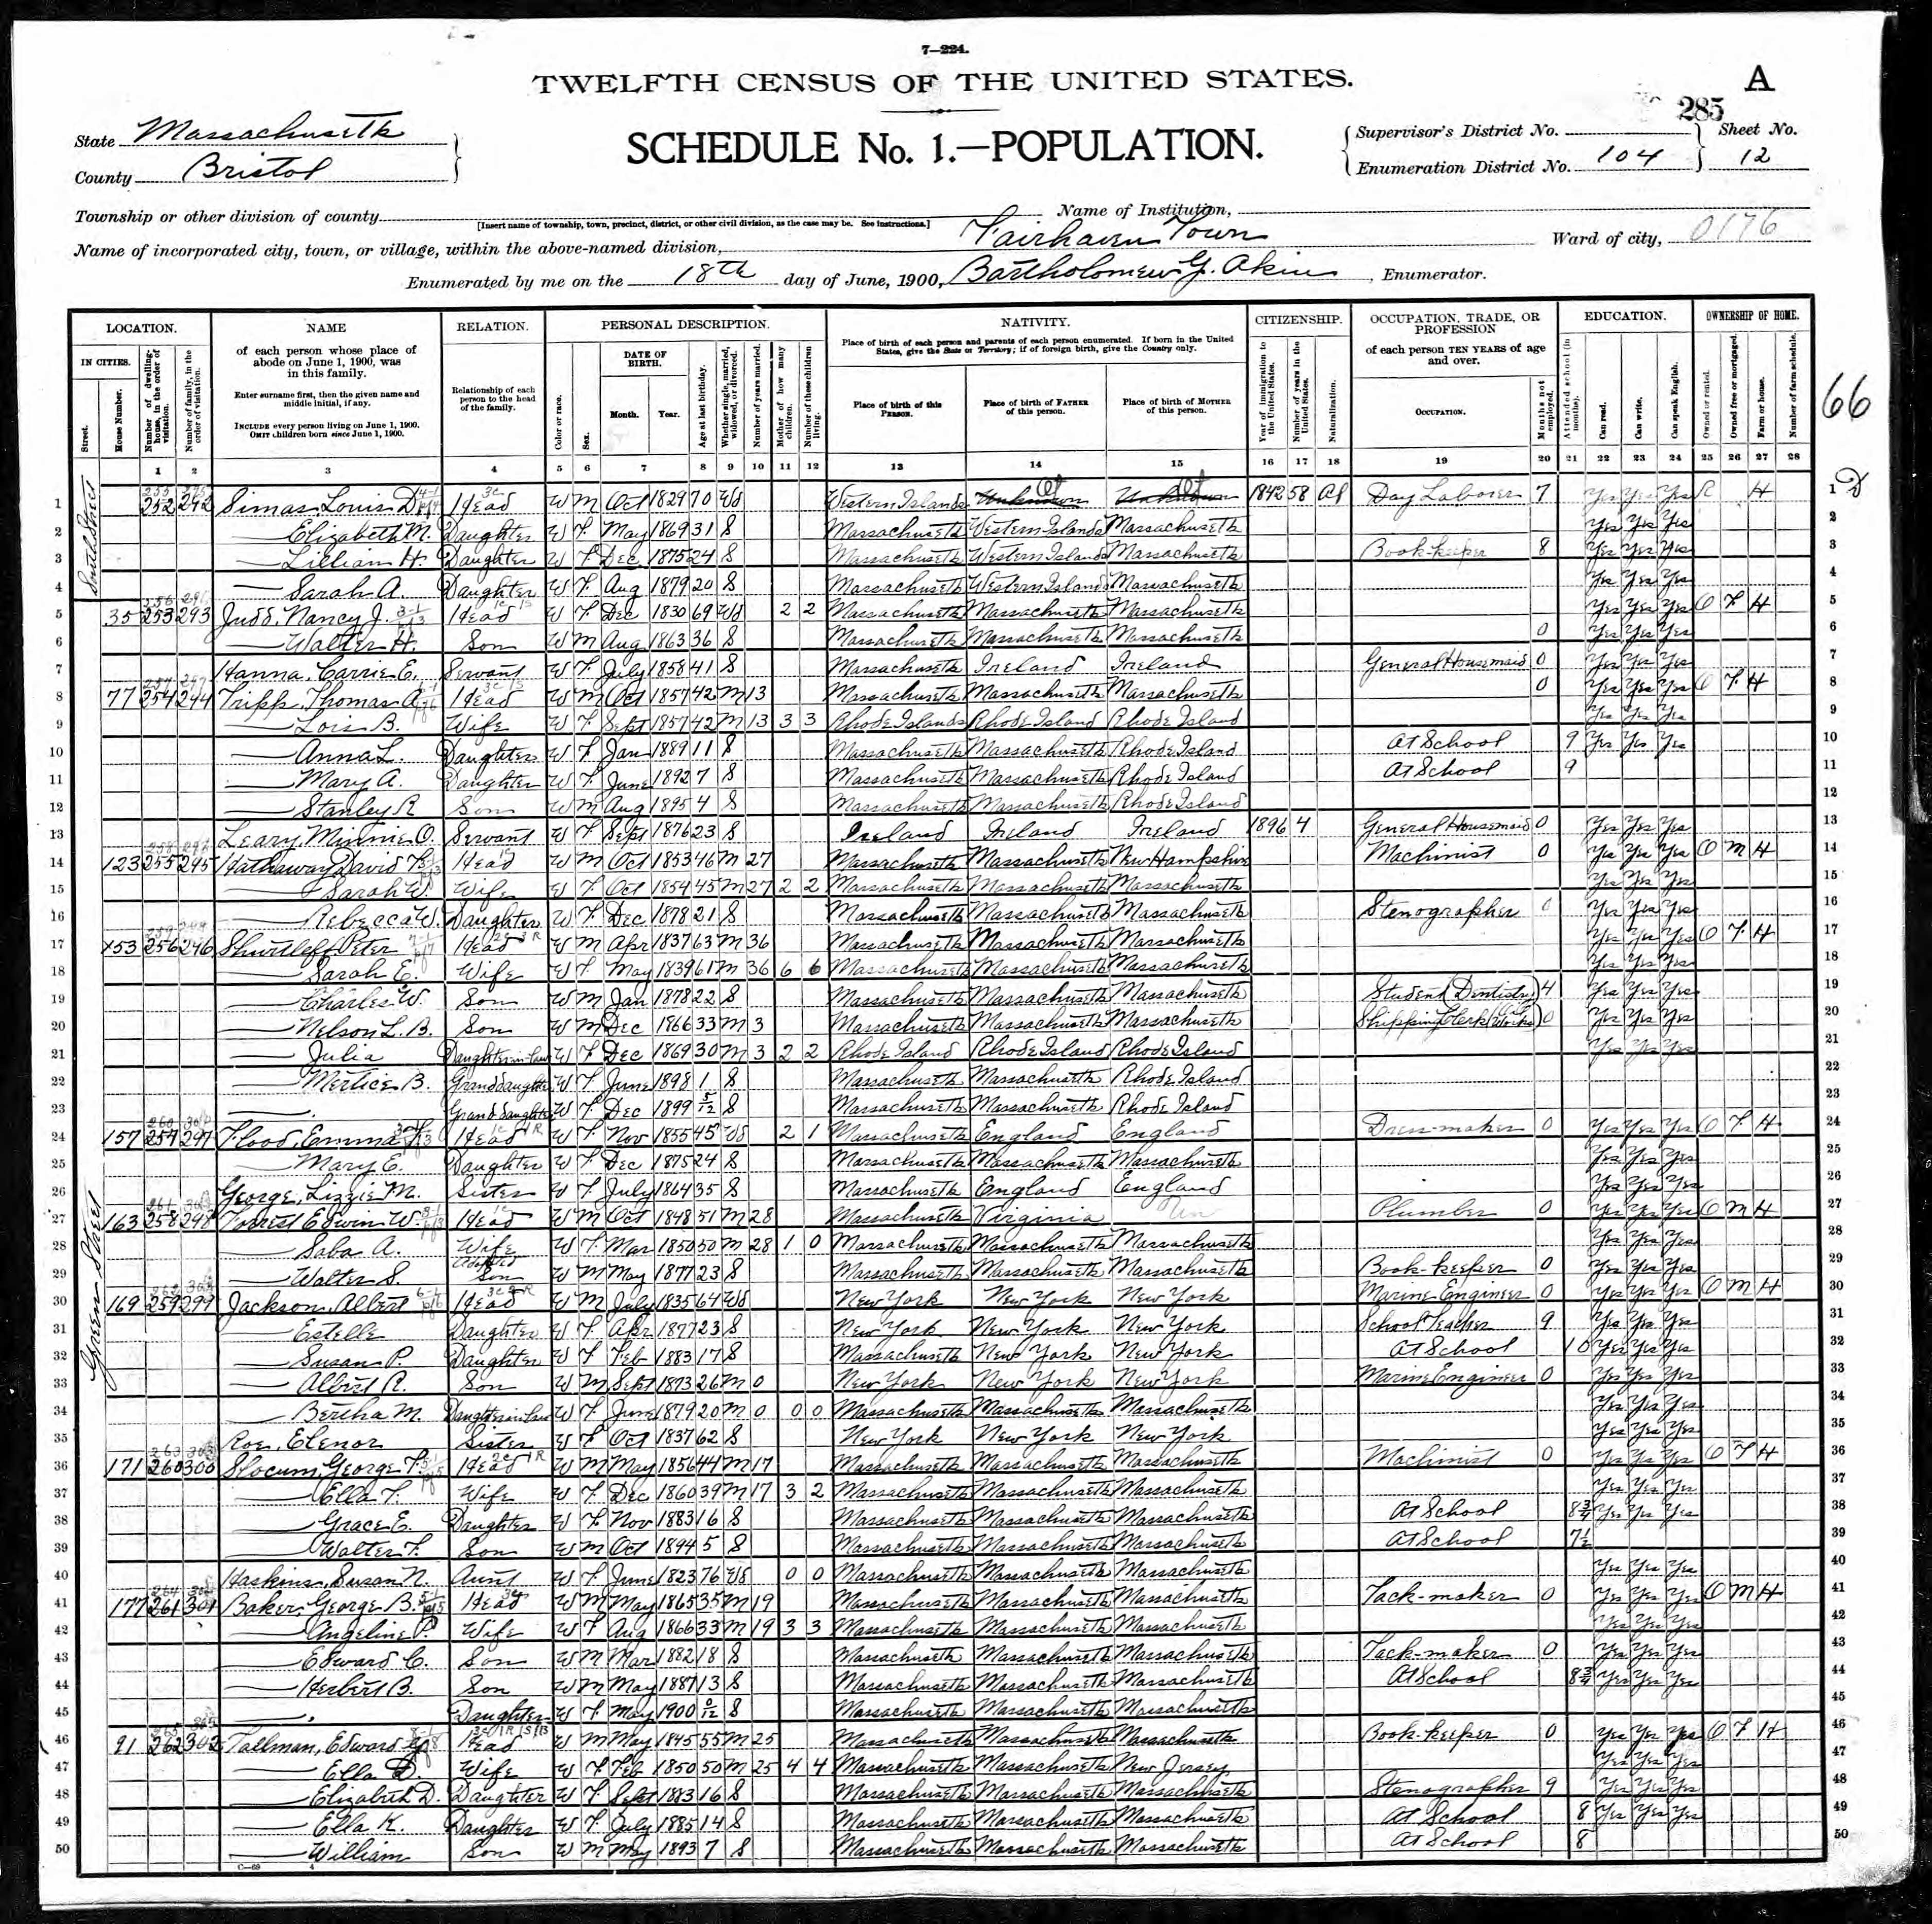 7—224.
TWELFTH CENSUS OF THE UNITED STATES.
A
285
State Massachusetts
County Bristol
SCHEDULE No. 1.—POPULATION.
Supervisor's District No.
Enumeration District No. 104
Sheet No.
12
Township or other division of county
[Insert name of township, town, precinct, district, or other civil division, as the case may be. See instructions.]
Name of Institution,
Name of incorporated city, town, or village, within the above-named division, Fairhaven Town
Ward of city, 0176
Enumerated by me on the 18th day of June, 1900, Bartholomew G. Akin, Enumerator.
66
LOCATION. NAME RELATION. PERSONAL DESCRIPTION. NATIVITY. CITIZENSHIP. OCCUPATION, TRADE, OR PROFESSION EDUCATION. OWNERSHIP OF HOME.
IN CITIES.
Street.
House Number.
Number of dwelling-house, in the order of visitation.
Number of family, in the order of visitation.
of each person whose place of abode on June 1, 1900, was in this family.
Enter surname first, then the given name and middle initial, if any.
INCLUDE every person living on June 1, 1900. OMIT children born since June 1, 1900.
Relationship of each person to the head of the family.
Color or race.
Sex.
DATE OF BIRTH.
Month. Year.
Age at last birthday.
Whether single, married, widowed, or divorced.
Number of years married.
Mother of how many children.
Number of these children living.
Place of birth of each person and parents of each person enumerated. If born in the United States, give the State or Territory; if of foreign birth, give the Country only.
Place of birth of this PERSON.
Place of birth of FATHER of this person.
Place of birth of MOTHER of this person.
Year of immigration to the United States.
Number of years in the United States.
Naturalization.
of each person TEN YEARS of age and over.
OCCUPATION.
Months not employed.
Attended school (in months).
Can read.
Can write.
Can speak English.
Owned or rented.
Owned free or mortgaged.
Farm or house.
Number of farm schedule.
1 2 3 4 5 6 7 8 9 10 11 12 13 14 15 16 17 18 19 20 21 22 23 24 25 26 27 28
South Street
1 252 292 Simas, Louis D. Head W M Oct 1829 70 Wd Western Islands Unknown Unknown 1842 58 Al Day Laborer 7 Yes Yes Yes R H 1
2 — Elizabeth M. Daughter W F May 1869 31 S Massachusetts Western Islands Massachusetts Yes Yes Yes 2
3 — Lillian H. Daughter W F Dec 1875 24 S Massachusetts Western Islands Massachusetts Book-keeper 8 Yes Yes Yes 3
4 — Sarah A. Daughter W F Aug 1879 20 S Massachusetts Western Islands Massachusetts Yes Yes Yes 4
Green Street
5 35 253 293 Judd, Nancy J. Head W F Dec 1830 69 Wd 2 2 Massachusetts Massachusetts Massachusetts Yes Yes Yes O F H 5
6 — Walter H. Son W M Aug 1863 36 S Massachusetts Massachusetts Massachusetts 0 Yes Yes Yes 6
7 Hanna, Carrie E. Servant W F July 1858 41 S Massachusetts Ireland Ireland General Housemaid 0 Yes Yes Yes 7
8 77 254 294 Tripp, Thomas A. Head W M Oct 1857 42 M 13 Massachusetts Massachusetts Massachusetts 0 Yes Yes Yes O F H 8
9 — Lois B. Wife W F Sept 1857 42 M 13 3 3 Rhode Islands Rhode Island Rhode Island Yes Yes Yes 9
10 — Anna L. Daughter W F Jan 1889 11 S Massachusetts Massachusetts Rhode Island At School 9 Yes Yes Yes 10
11 — Mary A. Daughter W F June 1892 7 S Massachusetts Massachusetts Rhode Island At School 9 11
12 — Stanley R Son W M Aug 1895 4 S Massachusetts Massachusetts Rhode Island 12
13 Leary, Minnie O. Servant W F Sept 1876 23 S Ireland Ireland Ireland 1896 4 General Housemaid 0 Yes Yes Yes 13
14 123 255 295 Hathaway, David Head W M Oct 1853 46 M 27 Massachusetts Massachusetts New Hampshire Machinist 0 Yes Yes Yes O M H 14
15 — Sarah W. Wife W F Oct 1854 45 M 27 2 2 Massachusetts Massachusetts Massachusetts Yes Yes Yes 15
16 — Rebecca W. Daughter W F Dec 1878 21 S Massachusetts Massachusetts Massachusetts Stenographer 0 Yes Yes Yes 16
17 153 256 296 Shurtleff Peter Head W M Apr 1837 63 M 36 Massachusetts Massachusetts Massachusetts Yes Yes Yes O F H 17
18 — Sarah E. Wife W F May 1839 61 M 36 6 6 Massachusetts Massachusetts Massachusetts Yes Yes Yes 18
19 — Charles W. Son W M Jan 1878 22 S Massachusetts Massachusetts Massachusetts Student (Dentistry) 4 Yes Yes Yes 19
20 — Nelson L. B. Son W M Dec 1866 33 M 3 Massachusetts Massachusetts Massachusetts Shipping Clerk 0 Yes Yes Yes 20
21 — Julia Daughter in Law W F Dec 1869 30 M 3 2 2 Rhode Island Rhode Island Rhode Island Yes Yes Yes 21
22 — Mertice B. Granddaughter W F June 1898 1 S Massachusetts Massachusetts Rhode Island 22
23 — . Granddaughter W F Dec 1899 5/12 S Massachusetts Massachusetts Rhode Island 23
24 157 257 297 Flood, Emma Head W F Nov 1855 45 Wd 2 1 Massachusetts England England Dress-maker 0 Yes Yes Yes O F H 24
25 — Mary E. Daughter W F Dec 1875 24 S Massachusetts Massachusetts Massachusetts Yes Yes Yes 25
26 George, Lizzie M. Sister W F July 1864 35 S Massachusetts England England Yes Yes Yes 26
27 163 258 298 Forrest Edwin W. Head W M Oct 1848 51 M 28 Massachusetts Virginia Un Plumber 0 Yes Yes Yes O M H 27
28 — Saba A. Wife W F Mar 1850 50 M 28 1 0 Massachusetts Massachusetts Massachusetts Yes Yes Yes 28
29 — Walter S. Adopted Son W M May 1877 23 S Massachusetts Massachusetts Massachusetts Book-keeper 0 Yes Yes Yes 29
30 169 259 299 Jackson, Albert Head W M July 1835 64 Wd New York New York New York Marine Engineer 0 Yes Yes Yes O M H 30
31 — Estelle Daughter W F Apr 1877 23 S New York New York New York School Teacher 9 Yes Yes Yes 31
32 — Susan P. Daughter W F Feb 1883 17 S Massachusetts New York New York At School 10 Yes Yes Yes 32
33 — Albert R. Son W M Sept 1873 26 M 0 New York New York New York Marine Engineer 0 Yes Yes Yes 33
34 — Bertha M. Daughter in Law W F June 1879 20 M 0 0 0 Massachusetts Massachusetts Massachusetts Yes Yes Yes 34
35 Roe, Elenor Sister W F Oct 1837 62 S New York New York New York Yes Yes Yes 35
36 171 260 300 Slocum, George F. Head W M May 1856 44 M 17 Massachusetts Massachusetts Massachusetts Machinist 0 Yes Yes Yes O F H 36
37 — Ella F. Wife W F Dec 1860 39 M 17 3 2 Massachusetts Massachusetts Massachusetts Yes Yes Yes 37
38 — Grace E. Daughter W F Nov 1883 16 S Massachusetts Massachusetts Massachusetts At School 8¾ Yes Yes Yes 38
39 — Walter F. Son W M Oct 1894 5 S Massachusetts Massachusetts Massachusetts At School 7½ 39
40 Haskins, Susan N. Aunt W F June 1823 76 Wd 0 0 Massachusetts Massachusetts Massachusetts Yes Yes Yes 40
41 177 261 301 Baker, George B. Head W M May 1865 35 M 19 Massachusetts Massachusetts Massachusetts Tack-maker 0 Yes Yes Yes O M H 41
42 — Angeline P. Wife W F Aug 1866 33 M 19 3 3 Massachusetts Massachusetts Massachusetts Yes Yes Yes 42
43 — Edward C. Son W M Mar 1882 18 S Massachusetts Massachusetts Massachusetts Tack-maker 0 Yes Yes Yes 43
44 — Herbert B. Son W M May 1887 13 S Massachusetts Massachusetts Massachusetts At School 8¾ Yes Yes Yes 44
45 — . Daughter W F May 1900 0/12 S Massachusetts Massachusetts Massachusetts 45
46 91 262 302 Tallman, Edward Head W M May 1845 55 M 25 Massachusetts Massachusetts Massachusetts Book-keeper 0 Yes Yes Yes O F H 46
47 — Ella D. Wife W F Feb 1850 50 M 25 4 4 Massachusetts Massachusetts New Jersey Yes Yes Yes 47
48 — Elizabeth D. Daughter W F Sept 1883 16 S Massachusetts Massachusetts Massachusetts Stenographer 9 Yes Yes Yes 48
49 — Ella K. Daughter W F July 1885 14 S Massachusetts Massachusetts Massachusetts At School 8 Yes Yes Yes 49
50 — William Son W M May 1893 7 S Massachusetts Massachusetts Massachusetts At School 8 50
C—69 4